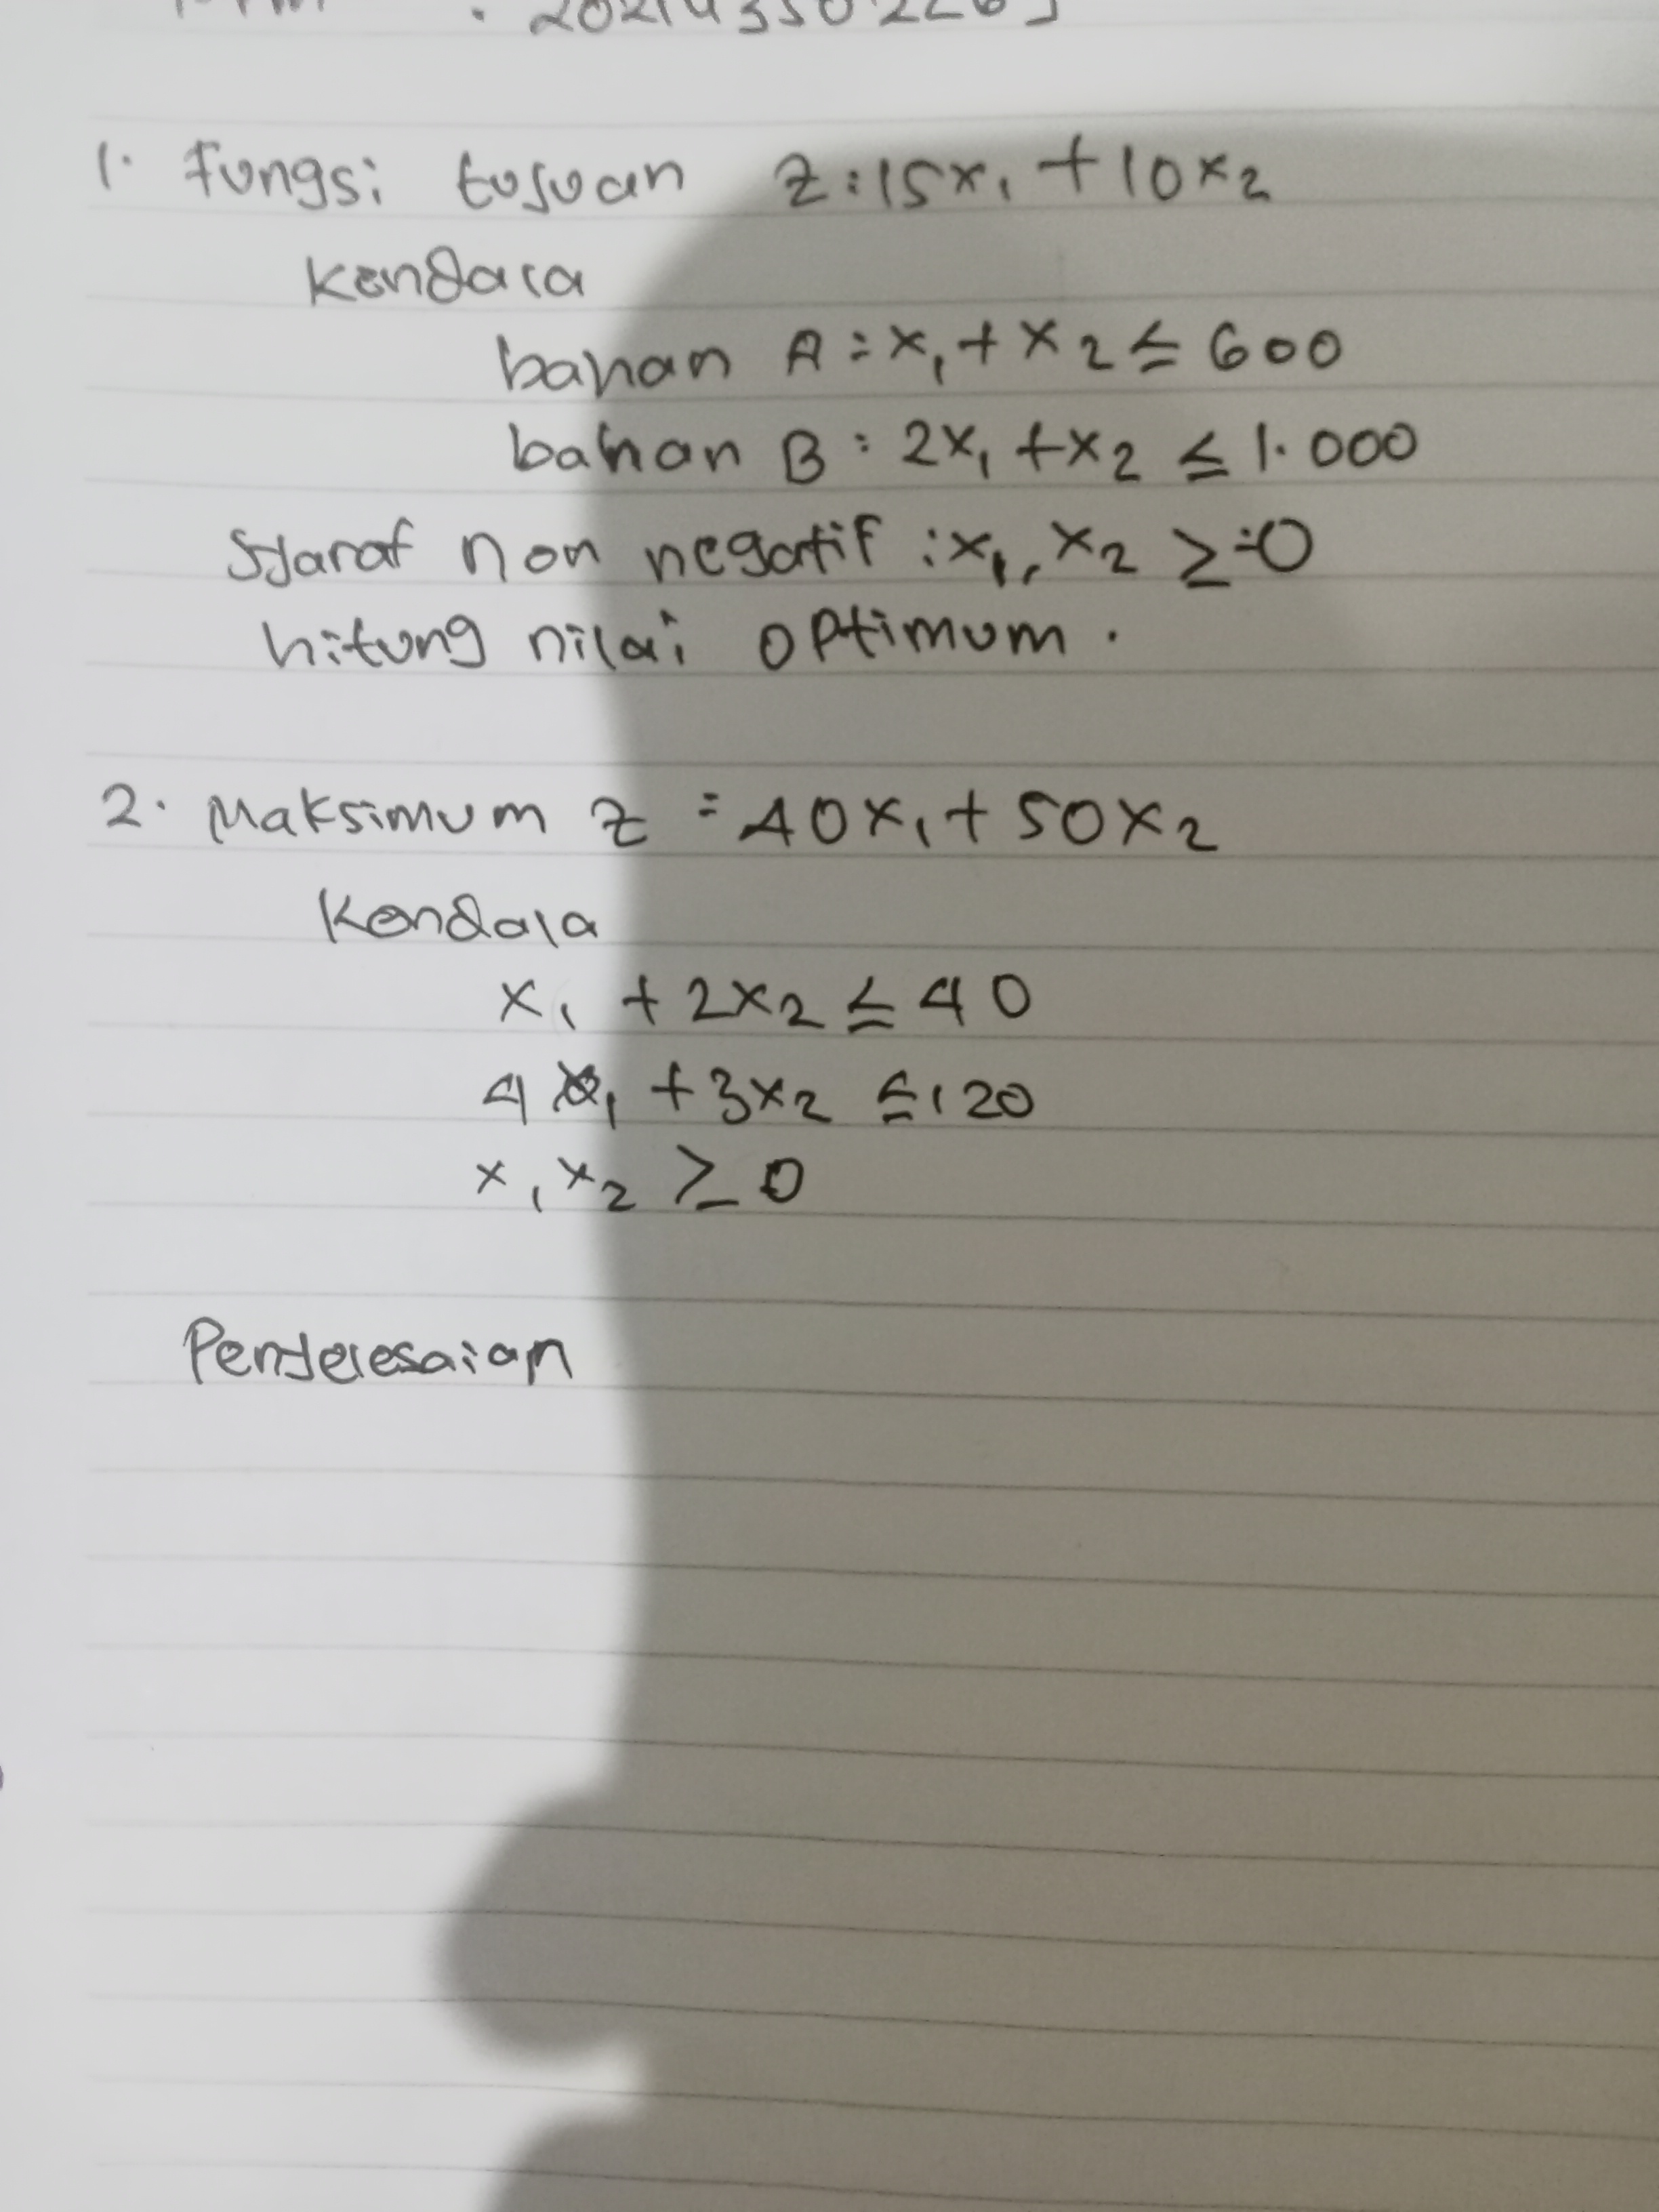 1. Fungsi tujuan Z : 15x₁ + 10x₂
Kendala
bahan A : x₁ + x₂ ≤ 600
bahan B : 2x₁ + x₂ ≤ 1.000
Syarat non negatif : x₁, x₂ ≥ 0
hitung nilai optimum.
2. Maksimum Z = 40x₁ + 50x₂
Kendala
x₁ + 2x₂ ≤ 40
4x₁ + 3x₂ ≤ 120
x₁ x₂ ≥ 0
Penyelesaian